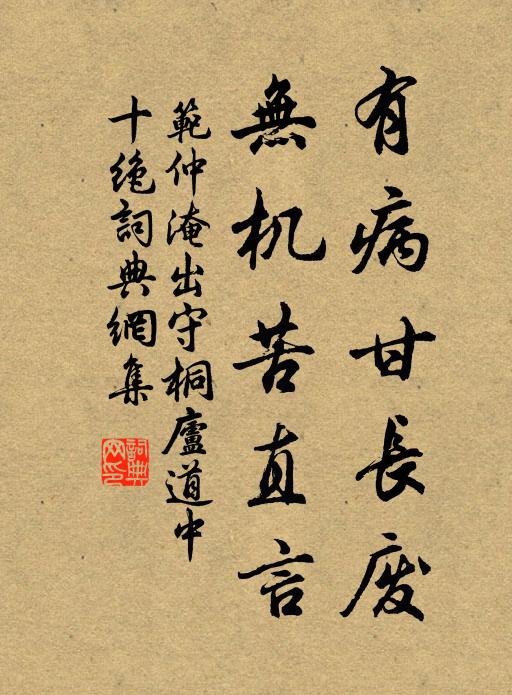 有病甘長废
無机苦直言
範仲淹出守桐廬道中
十绝詞典網集
詞典网印